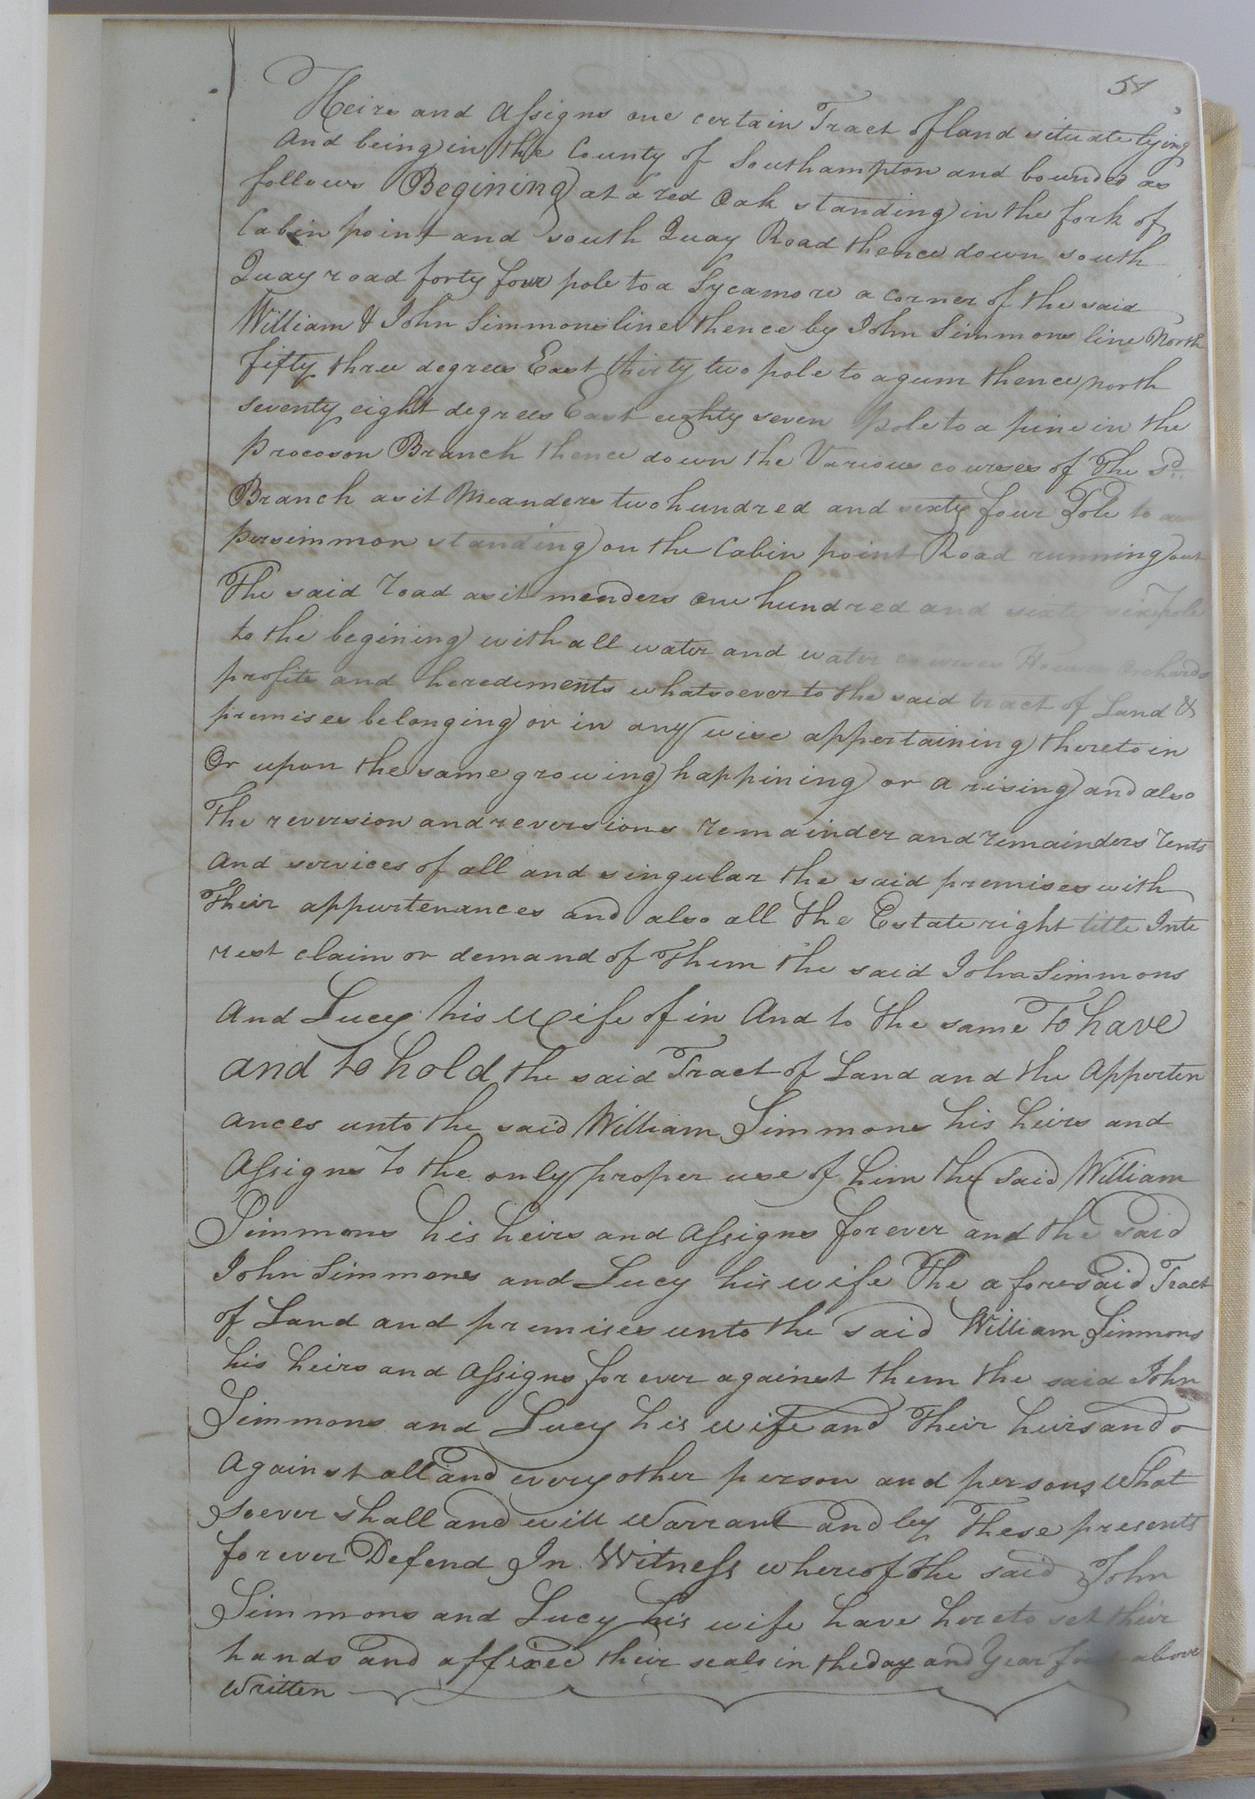 54
Heirs and Assigns one certain Tract of land situate lying
And being in the County of Southampton and bounded as
follows Begining at a red Oak standing in the fork of
Cabin point and south Quay Road thence down south
Quay road forty four pole to a Sycamore a corner of the said
William & John Simmons line thence by John Simmons line North
fifty three degrees East thirty two pole to a gum thence north
seventy eight degrees East eighty seven pole to a pine in the
procoson Branch thence down the Various courses of the sd.
Branch as it Meanders two hundred and sixty four Pole to a
persimmon standing on the Cabin point Road running out
The said road as it menders one hundred and sixty six pole
to the begining with all water and water courses Houses Orchards
profits and herediments whatsoever to the said tract of Land &
premises belonging or in any wise appertaining thereto in
Or upon the same growing happining or a rising and also
The reversion and reversions remainder and remainders rents
And services of all and singular the said premises with
Their appurtenances and also all the Estate right title Inte
rest claim or demand of them the said John Simmons
And Lucy his Wife of in And to the same To have
and to hold the said Tract of Land and the Apporten
ances unto the said William Simmons his heirs and
Assigns To the only proper use of him the said William
Simmons his heirs and Assigns forever and the said
John Simmons and Lucy his wife The aforesaid Tract
of Land and premises unto the said William Simmons
his heirs and Assigns for ever against them the said John
Simmons and Lucy his wife and Their heirs and
Against all and every other person and persons What
soever shall and will Warrant and by These presents
forever Defend In Witness whereof the said John
Simmons and Lucy his wife have hereto set their
hands and affixed their seals in the day and Year first above
Written